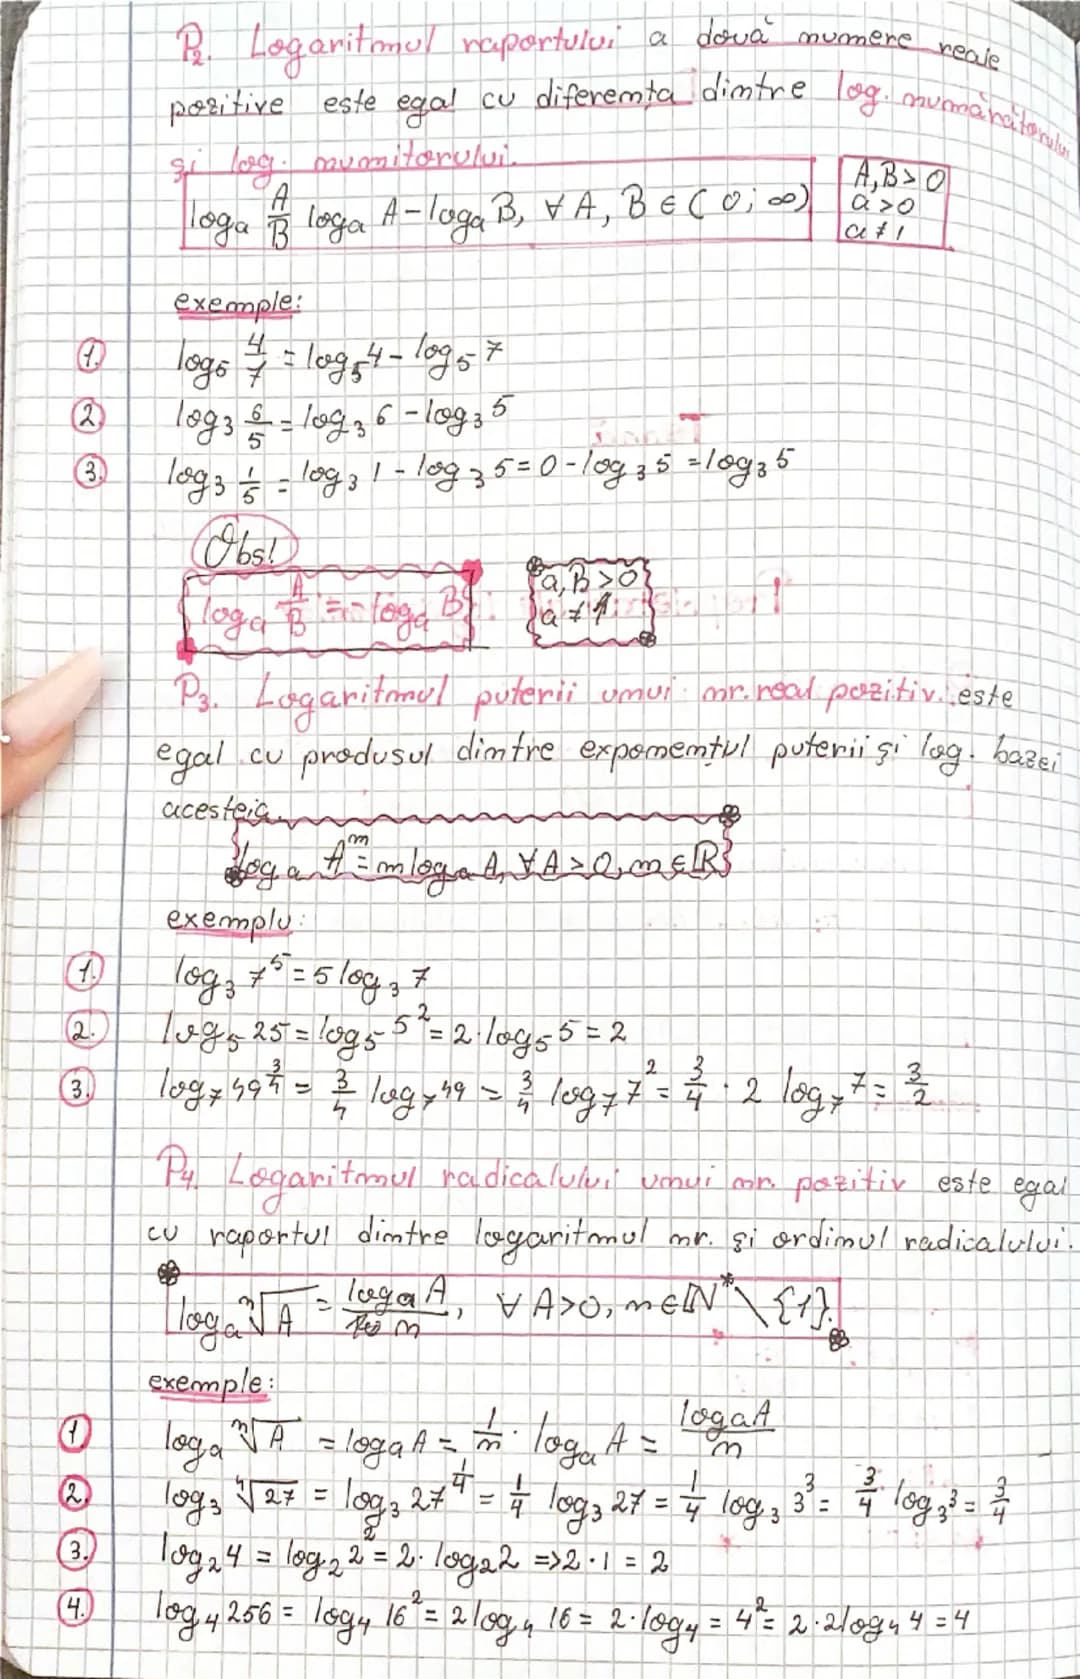 P2. Logaritmul raportului a două numere reale
pozitive este egal cu diferența dintre log. numărătorului
și log. numitorului.
logₐ A/B logₐ A - logₐ B, ∀ A, B ∈ (0; ∞)
A,B > 0
a > 0
a ≠ 1
exemple:
1. log₅ 4/7 = log₅ 4 - log₅ 7
2. log₃ 6/5 = log₃ 6 - log₃ 5
3. log₃ 1/5 = log₃ 1 - log₃ 5 = 0 - log₃ 5 = log₃ 5
Obs!
logₐ A/B = - logₐ B
a, B > 0
a ≠ 1
P3. Logaritmul puterii unui nr. real pozitiv este
egal cu produsul dintre exponențul puterii și log. bazei
acesteia.
logₐ Aᵐ = m logₐ A, ∀ A > 0, m ∈ ℝ
exemplu:
1. log₃ 7⁵ = 5 log₃ 7
2. log₅ 25 = log₅ 5² = 2·log₅ 5 = 2
3. log₇ 49^(3/4) = 3/4 log₇ 49 = 3/4 log₇ 7² = 3/4 · 2 log₇ 7 = 3/2
P4. Logaritmul radicalului unui nr. pozitiv este egal
cu raportul dintre logaritmul nr. și ordinul radicalului.
logₐ ⁿ√A = logₐ A / n, ∀ A>0, n ∈ ℕ* \ {1}.
exemple:
1 logₐ ⁿ√A = logₐ A = 1/n · logₐ A = logₐ A / n
2. log₃ ⁴√27 = log₃ 27^(1/4) = 1/4 log₃ 27 = 1/4 log₃ 3³ = 3/4 log₃ 3 = 3/4
3. log₂ 4 = log₂ 2² = 2· log₂ 2 => 2·1 = 2
4. log₄ 256 = log₄ 16² = 2 log₄ 16 = 2·log₄ = 4² = 2·2log₄ 4 = 4